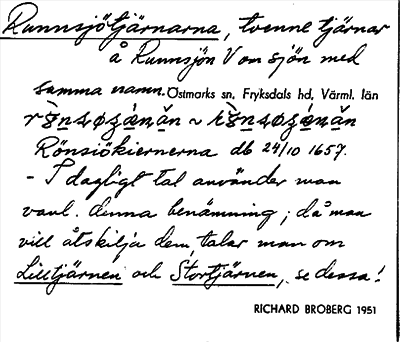 Runnsjötjärnarna, tvenne tjärnar
å Runnsjön V om sjön med
samma namn. Östmarks sn, Fryksdals hd, Värml. län
Rönsiökiernerna db 24/10 1657.
- I dagligt tal använder man
vanl. denna benämning; då man
vill åtskilja dem, talar man om
Lilltjärnen och Stortjärnen, se dessa!
RICHARD BROBERG 1951